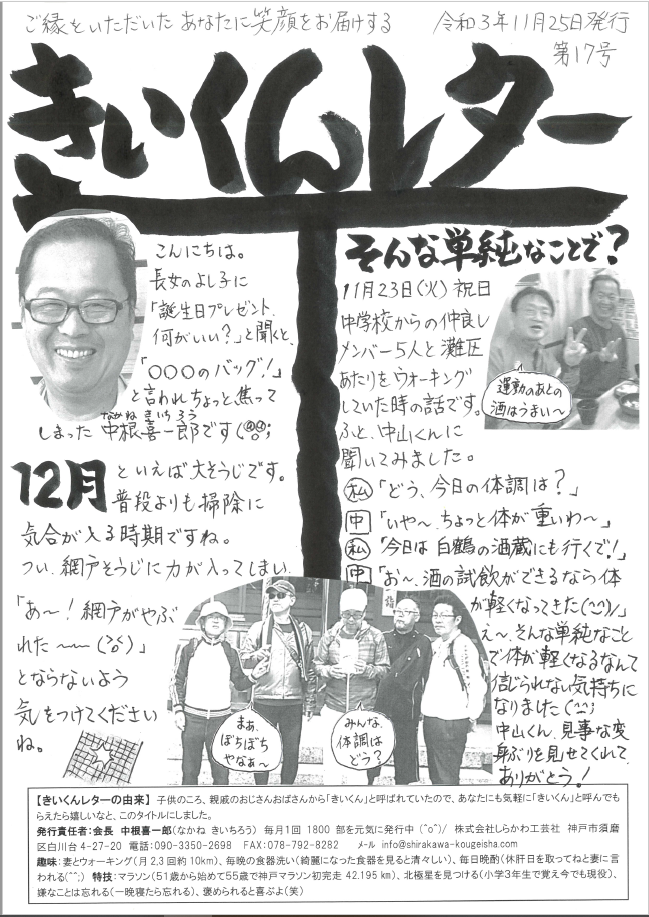 ご縁をいただいた あなたに笑顔をお届けする
令和3年11月25日発行
第17号
きいくんレター
こんにちは。
長女のよし子に
「誕生日プレゼント、
何がいい?」と聞くと、
「○○○のバッグ!」
と言われちょっと、焦って
しまった 中根喜一郎です(
なかね きいちろう
12月 といえば大そうじです。
普段よりも掃除に
気合が入る時期ですね。
つい、網戸そうじに力が入ってしまい、
「あ〜!網戸がやぶ
れた〜〜
とならないよう
気をつけてください
ね。
そんな単純なことで?
11月23日(火)祝日
中学校からの仲良し
メンバー5人と灘区
あたりをウォーキング
していた時の話です。
ふと、中山くんに
聞いてみました。
私「どう、今日の体調は?」
中「いや〜、ちょっと体が重いわ〜」
私「今日は白鶴の酒蔵にも行くで!」
中「お〜、酒の試飲ができるなら体
が軽くなってきた(^^)/」
え〜、そんな単純なこと
で体が軽くなるなんて
信じられない気持ちに
なりました(^^;
中山くん、見事な変
身ぶりを見せてくれて、
ありがとう!
運動のあとの
酒はうまい〜
まあ、
ぼちぼち
やなぁ〜
みんな、
体調は
どう?
【きいくんレターの由来】 子供のころ、親戚のおじさんおばさんから「きいくん」と呼ばれていたので、あなたにも気軽に「きいくん」と呼んでも
らえたら嬉しいなと、このタイトルにしました。
発行責任者:会長 中根喜一郎(なかね きいちろう) 毎月1回 1800 部を元気に発行中 (^o^)/ 株式会社しらかわ工芸社 神戸市須磨
区白川台 4-27-20 電話:090-3350-2698 FAX:078-792-8282 メール info@shirakawa-kougeisha.com
趣味:妻とウォーキング(月 2,3 回約 10km)、毎晩の食器洗い(綺麗になった食器を見ると清々しい)、毎日晩酌(休肝日を取ってねと妻に言
われる(^^;) 特技:マラソン(51歳から始めて55歳で神戸マラソン初完走 42.195 km)、北極星を見つける(小学3年生で覚え今でも現役)、
嫌なことは忘れる(一晩寝たら忘れる)、褒められると喜ぶよ(笑)